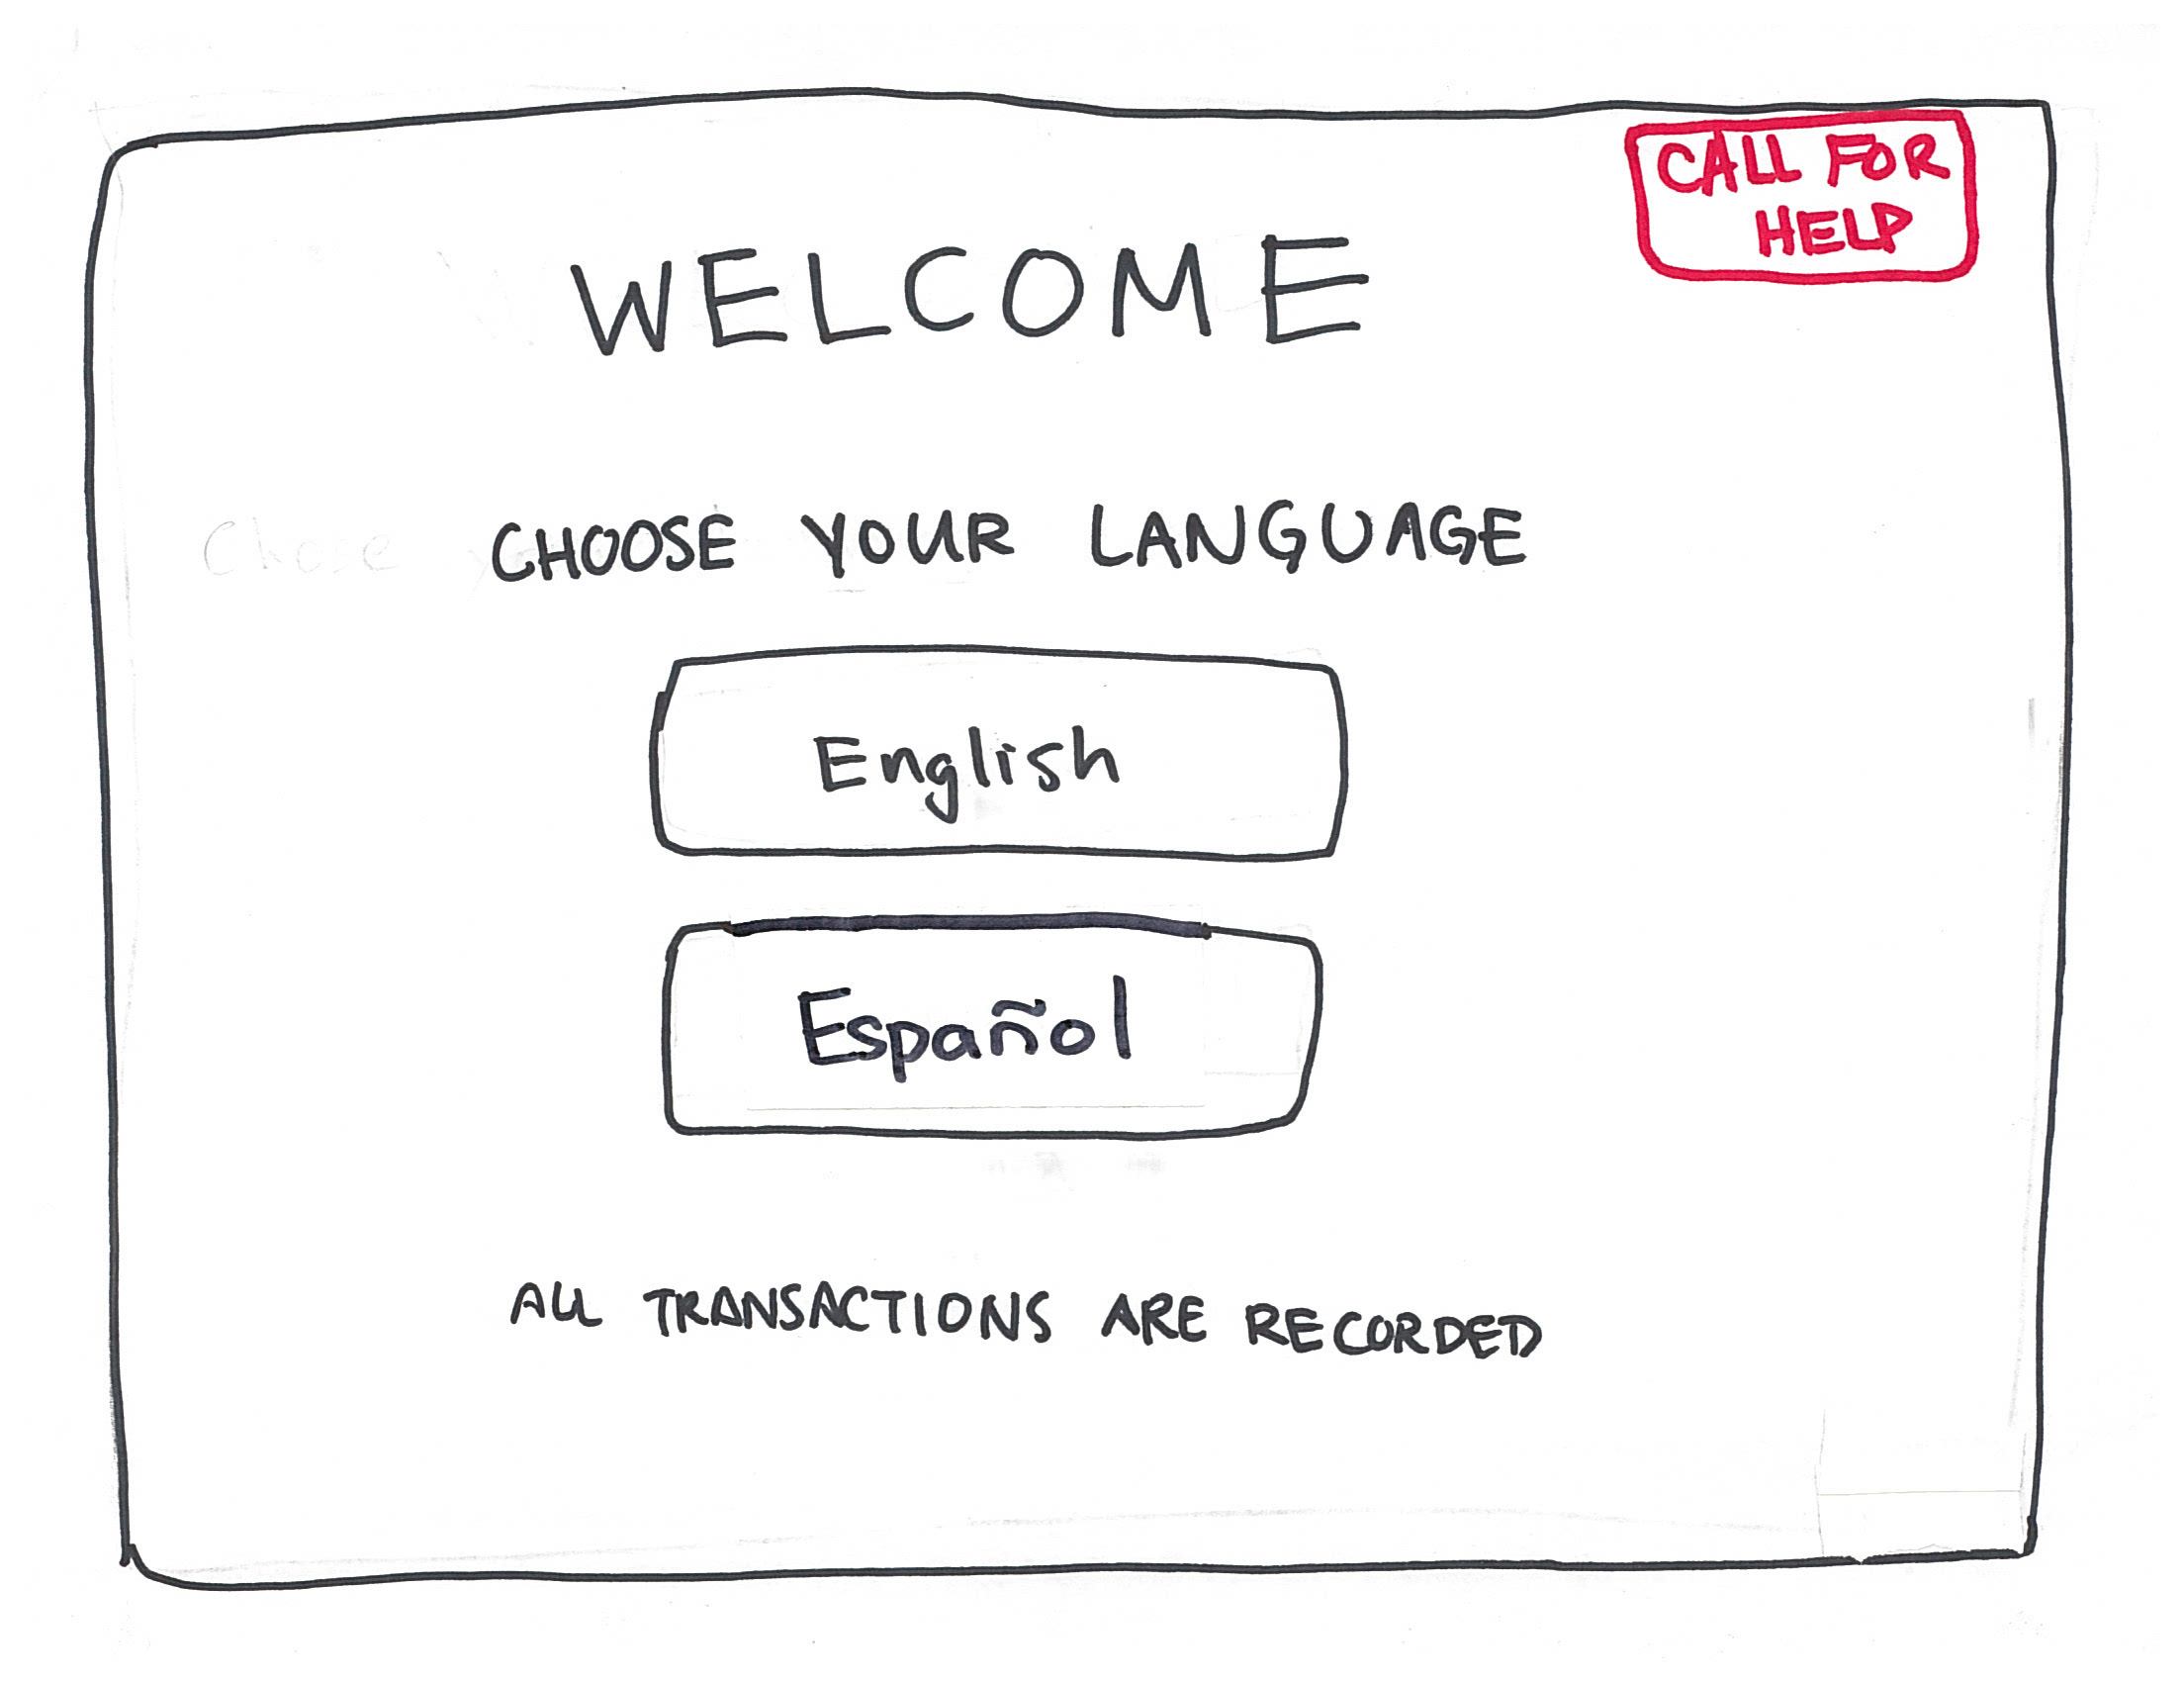 CALL FOR
HELP
WELCOME
CHOOSE YOUR LANGUAGE
Chose
English
Español
ALL TRANSACTIONS ARE RECORDED